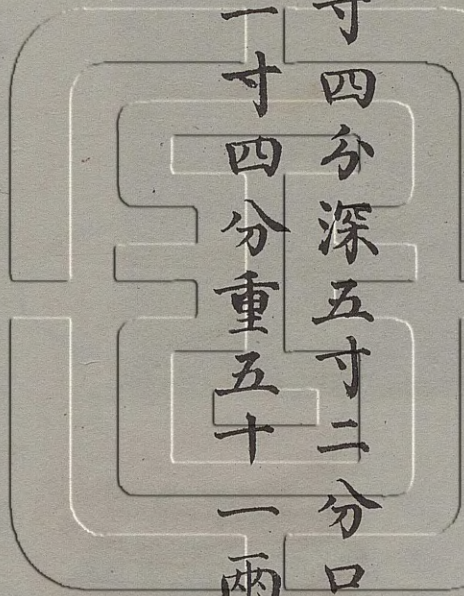 寸四分深五寸二分口
一寸四分重五十一兩